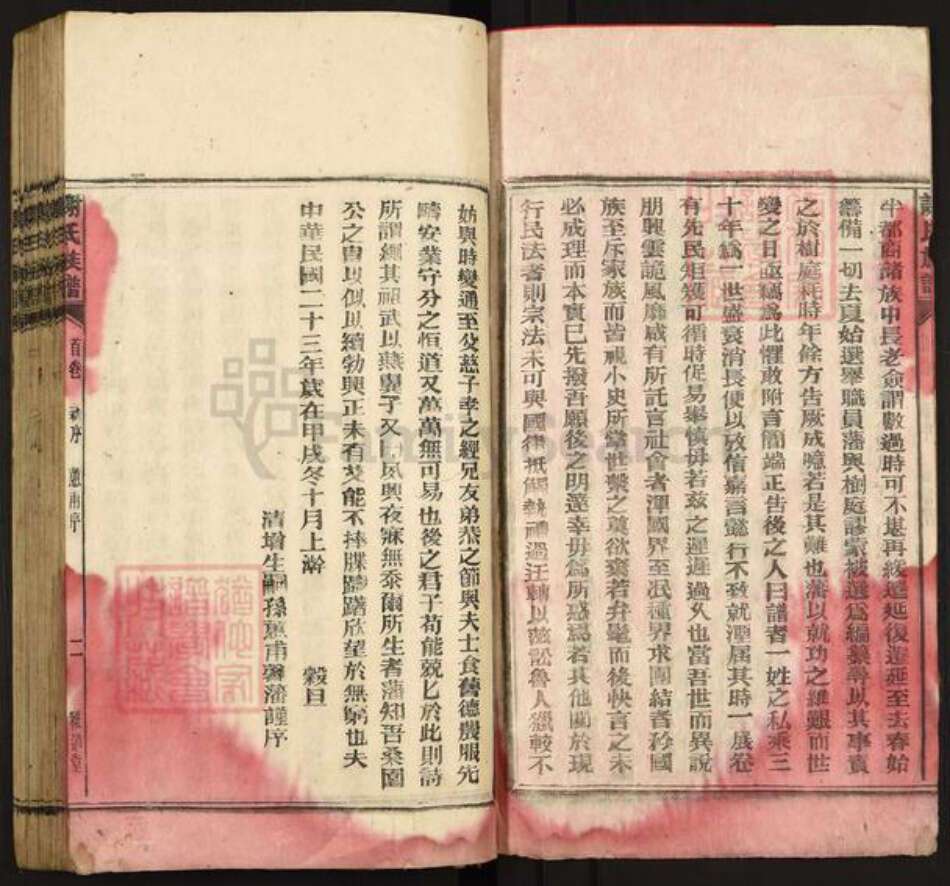 牛都啟諸族中長老僉謂數過時可不堪再緩遷延復遷延至去春始
籌備一切去夏始選舉職員藩與樹庭謬蒙被選為編纂尋以其事責
之於樹庭耗時年餘方告厥成噫若是其難也藩以就功之維艱而世
變之日亟竊為此懼敢附言簡端正告後之人曰譜者一姓之私乘三
十年為一世盛衰消長便以攷偕嘉言懿行不致就湮屆其時一展卷
有先民矩矱可循時促易舉慎毋若茲之遲遲過久也當吾世而異說
朋興雲詭風靡咸有所託言社會者渾國界至泯種界求團結者矜國
族至斥家族而皆視小史所掌世繫之奠欲棄若弁髦而後快言之未
必成理而本實已先撥吾願後之明達幸毋為所惑焉若其他關於現
行民法者則宗法未可與國律抵觸執禮過迂轉以滋訟魯人獵較不
妨與時變通至父慈子孝之經兄友弟恭之節與夫士食舊德農服先
疇安業守分之恒道又萬萬無可易也後之君子苟能兢匕於此則詩
所謂繩其祖武以燕翼子又夙興夜寐無忝爾所生者藩知吾桑園
公之胄以似以續勃興正未有艾能不捧牒躊躇欣望於無窮也夫
中華民國二十三年歲在甲戌冬十月上澣 穀旦
清增生嗣孫蕙甫藩謹序
謝氏族譜 首卷 序 蕙甫序 二